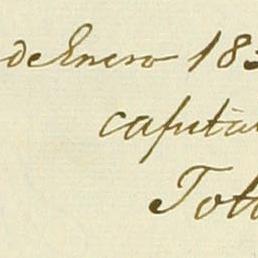 de Enero 183
capita
Tota